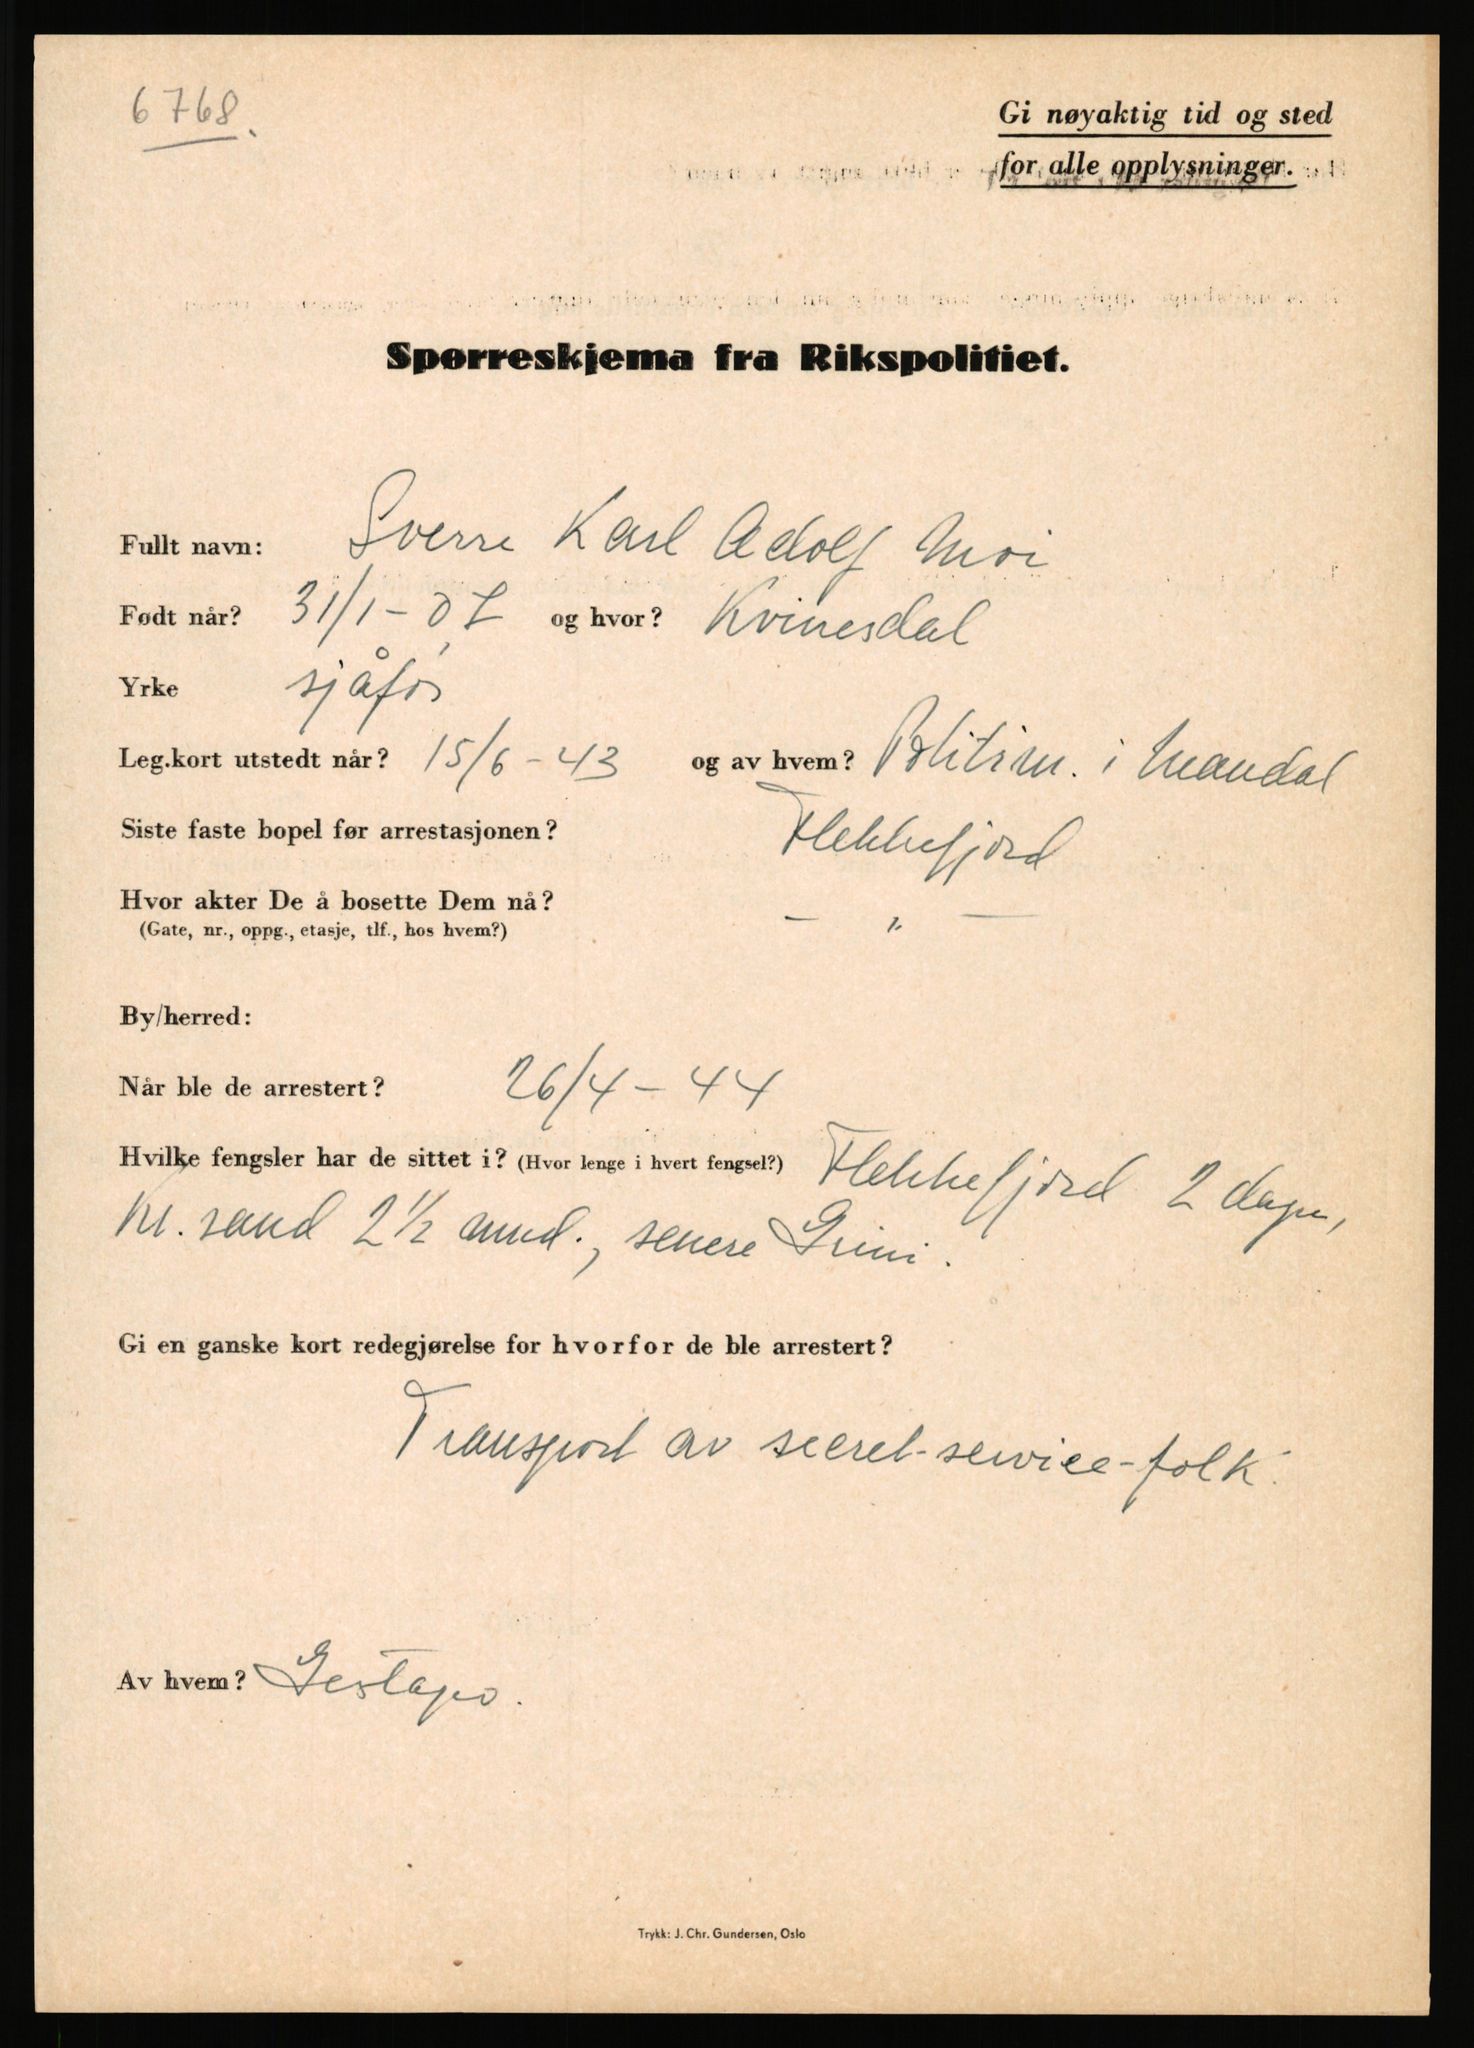 6768.
Gi nøyaktig tid og sted
for alle opplysninger.
Spørreskjema fra Rikspolitiet.
Fullt navn: Sverre Karl Adolf Moi
Født når? 31/1-07 og hvor? Kvinesdal
Yrke sjåfør
Leg.kort utstedt når? 15/6-43 og av hvem? Politim. i Mandal
Siste faste bopel før arrestasjonen? Flekkefjord
Hvor akter De å bosette Dem nå? — " —
(Gate, nr., oppg., etasje, tlf., hos hvem?)
By/herred:
Når ble de arrestert? 26/4-44
Hvilke fengsler har de sittet i? (Hvor lenge i hvert fengsel?) Flekkefjord 2 dager,
Kr.sand 2 1/2 mnd., senere Grini.
Gi en ganske kort redegjørelse for hvorfor de ble arrestert?
Transport av secret-service-folk.
Av hvem? Gestapo.
Trykk: J. Chr. Gundersen, Oslo